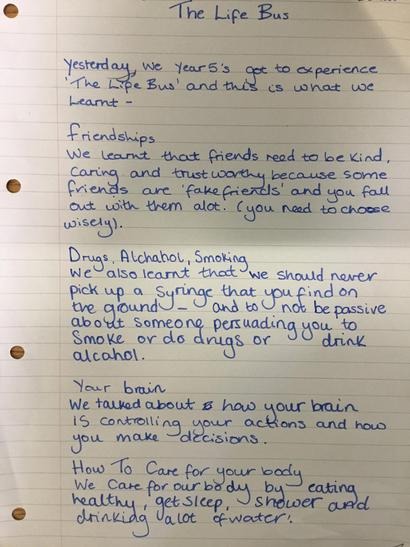 The Life Bus
Yesterday, we year 5's got to experience
'The Life Bus' and this is what we
Learnt -
friendships
We learnt that friends need to be kind,
Caring and trustworthy because some
friends are 'fake friends' and you fall
out with them alot. (you need to choose
wisely).
Drugs, Alchahol, Smoking
We also learnt that we should never
pick up a syringe that you find on
the ground - and to not be passive
about someone persuading you to
Smoke or do drugs or drink
alcahol.
Your brain
We talked about how your brain
is controlling your actions and how
you make decisions.
How To Care for your body
We Care for our body by eating
healthy, get sleep, shower and
drinking alot of water!